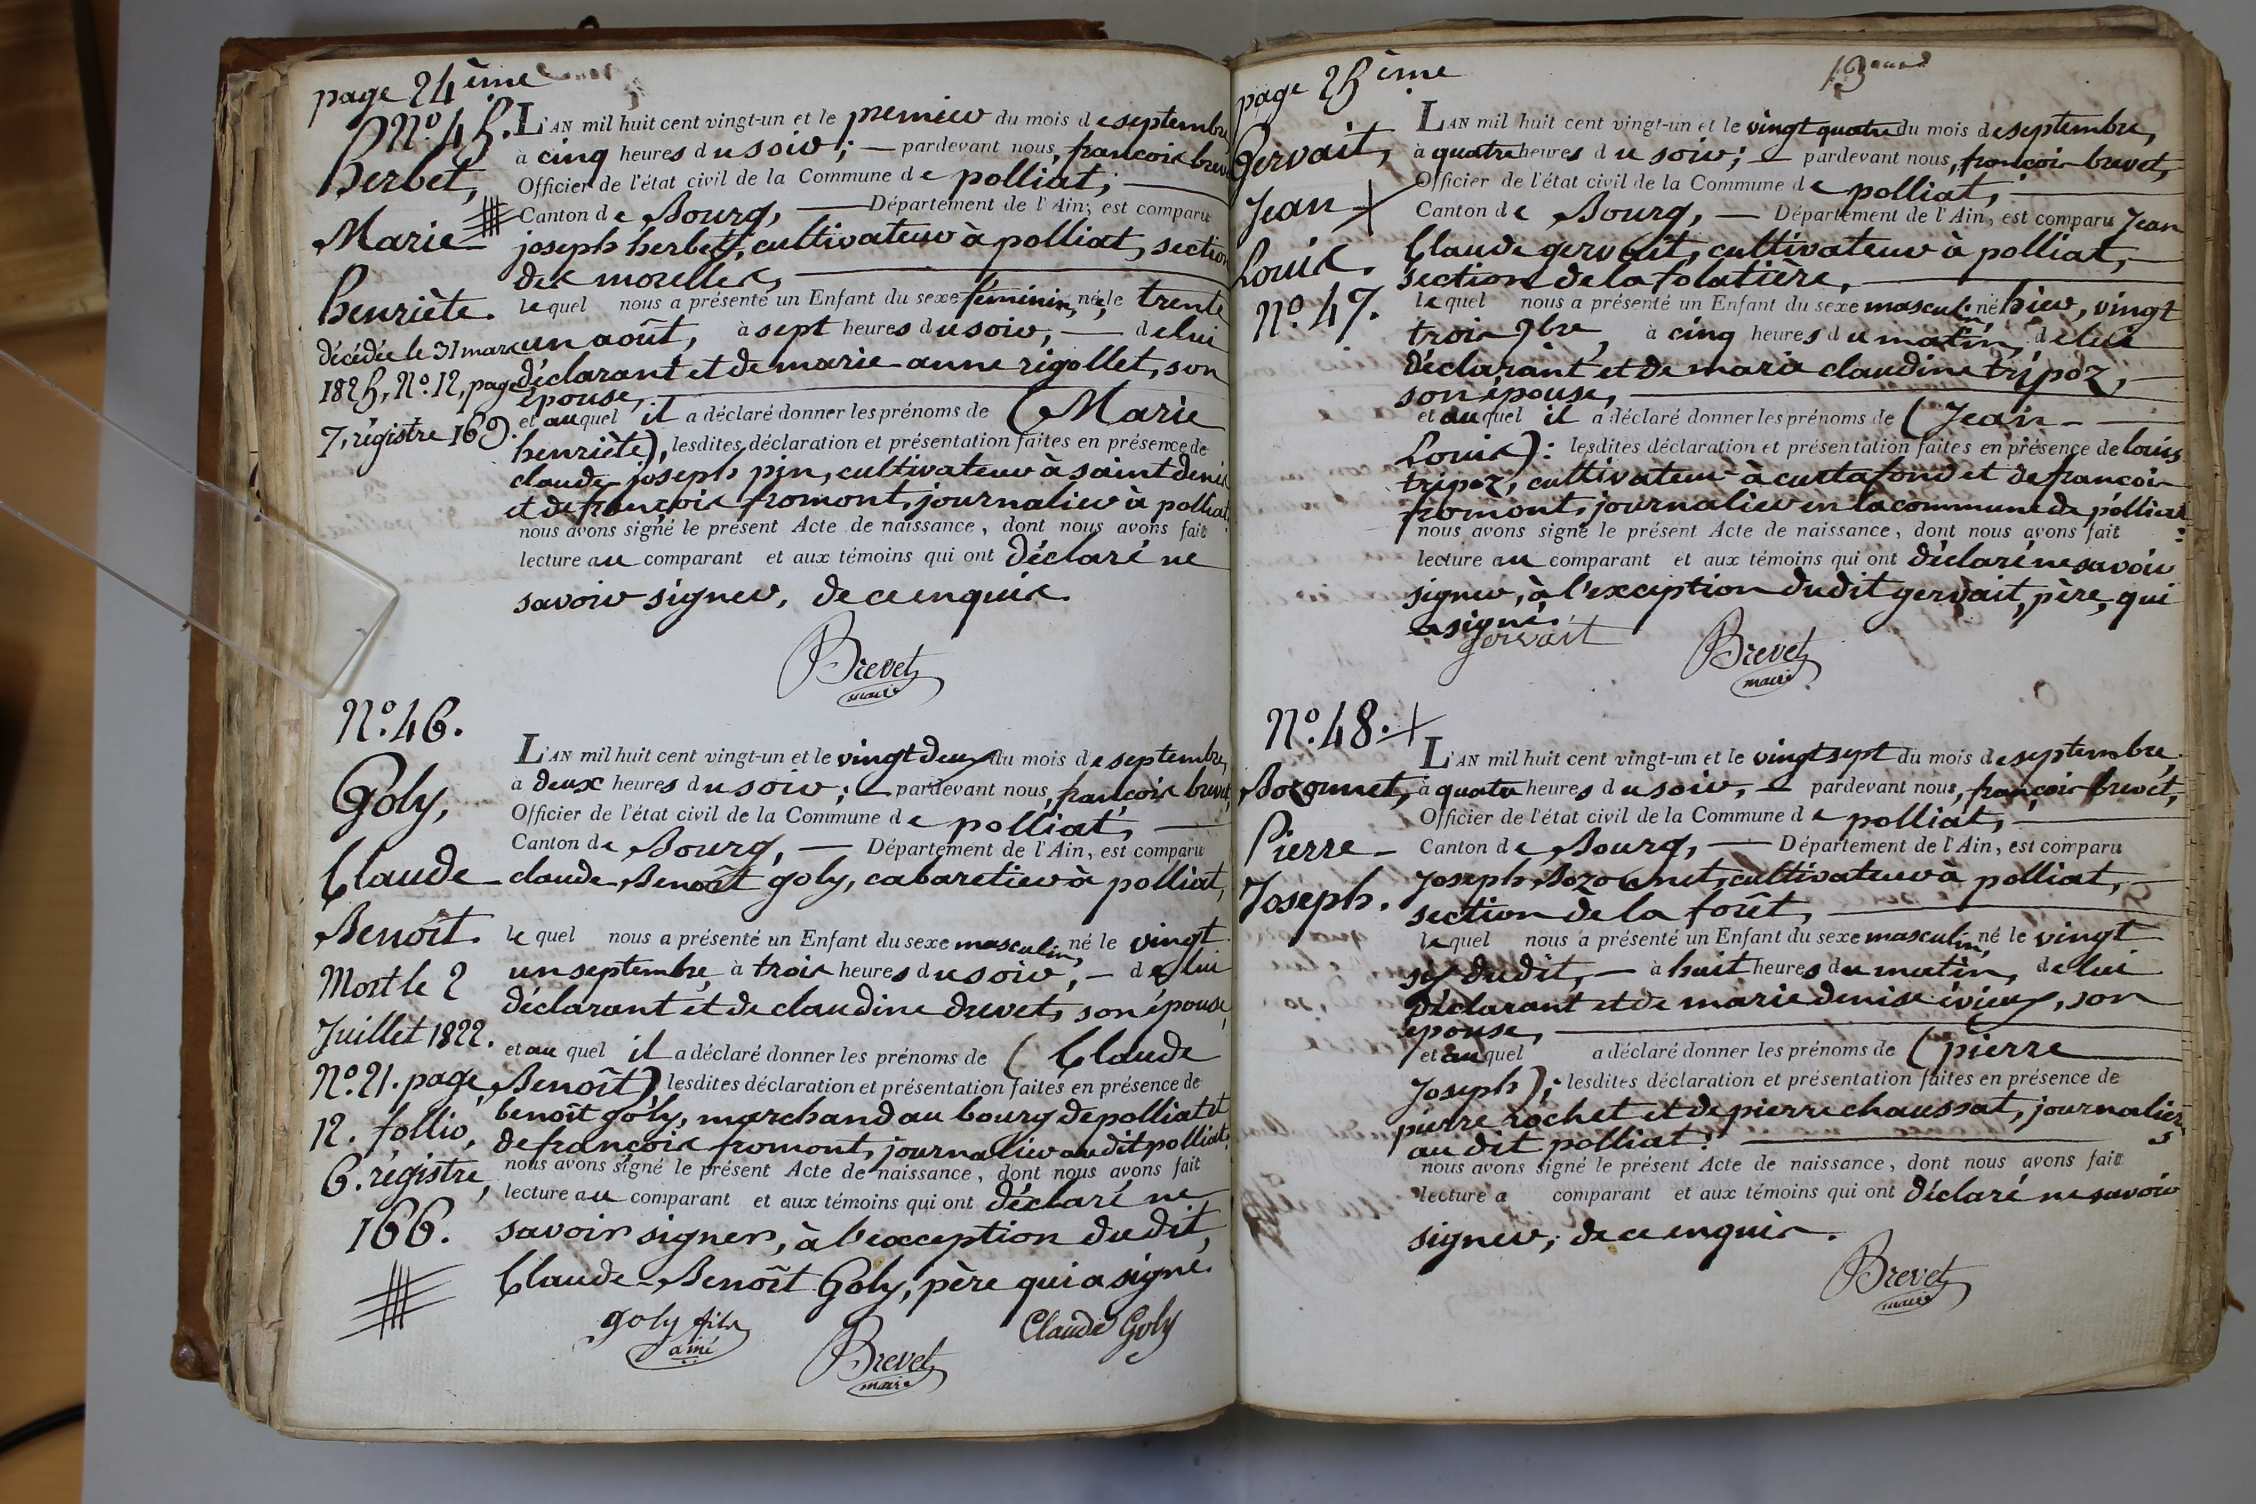 page 24ème
N° 45.
herbet,
Marie
henriète.
décédée le 31 mars
1825, N°. 12, page
7, régistre 169.
L'AN mil huit cent vingt-un et le premier du mois de septembre,
à cinq heures du soir; — pardevant nous, françois brevet
Officier de l'état civil de la Commune de polliat; —
Canton de Bourg, — Département de l'Ain, est comparu
joseph herbet, cultivateur à polliat, section
des morelles, —
lequel nous a présenté un Enfant du sexe féminin, né le trente
un août, à sept heures du soir, — de lui
déclarant et de marie anne rigollet, son
épouse, —
et auquel il a déclaré donner les prénoms de (Marie
henriète), lesdites déclaration et présentation faites en présence de
claude joseph pin, cultivateur à saint denis
et de françois fromont, journalier à polliat
nous avons signé le présent Acte de naissance, dont nous avons fait
lecture au comparant et aux témoins qui ont déclaré ne
savoir signer, de ce enquis.
Brevet
maire
N°. 46.
Goly,
Claude
Benoît.
Mort le 2
Juillet 1822.
N°. 21. page
12. follio,
6. régistre,
166.
L'AN mil huit cent vingt-un et le vingt deux du mois de septembre,
à deux heures du soir; — pardevant nous, françois brevet,
Officier de l'état civil de la Commune de polliat, —
Canton de Bourg, — Département de l'Ain, est comparu
claude Benoît goly, cabaretier à polliat,
lequel nous a présenté un Enfant du sexe masculin, né le vingt
un septembre, à trois heures du soir, — de lui
déclarant et de claudine druet, son épouse,
et au quel il a déclaré donner les prénoms de (Claude
Benoît) lesdites déclaration et présentation faites en présence de
benoît goly, marchand au bourg de polliat et
de françois fromont, journalier au dit polliat.
nous avons signé le présent Acte de naissance, dont nous avons fait
lecture au comparant et aux témoins qui ont déclaré ne
savoir signer, à l'exception du dit,
Claude Benoît Goly, père qui a signé.
goly fils
ainé
Brevet
maire
Claude Goly
page 25ème
Gervait,
Jean
Louis.
N°. 47.
LAN mil huit cent vingt-un et le vingt quatre du mois de septembre,
à quatre heures du soir; — pardevant nous, françois brevet,
Officier de l'état civil de la Commune de polliat, —
Canton de Bourg, — Département de l'Ain, est comparu Jean
Claude gervait, cultivateur à polliat, —
section de la folatière, —
lequel nous a présenté un Enfant du sexe masculin, né hier, vingt
trois 7bre, à cinq heures du matin, de lui
déclarant et de marie claudine tripoz, —
son épouse, —
et auquel il a déclaré donner les prénoms de (Jean
Louis): lesdites déclaration et présentation faites en présence de louis
tripoz, cultivateur à curtafond et de françois
fromont, journalier en la commune de polliat.
nous avons signé le présent Acte de naissance, dont nous avons fait
lecture au comparant et aux témoins qui ont déclaré ne savoir
signer, à l'exception du dit gervait, père, qui
a signé.
gervait
Brevet
maire
N°. 48.
Bozonnet,
Pierre
Joseph.
L'AN mil huit cent vingt-un et le vingt sept du mois de septembre,
à quatre heures du soir, — pardevant nous, françois brevet,
Officier de l'état civil de la Commune de polliat, —
Canton de Bourg, — Département de l'Ain, est comparu
Joseph Bozonnet, cultivateur à polliat, —
section de la forêt, —
lequel nous a présenté un Enfant du sexe masculin, né le vingt
six du dit, — à huit heures du matin, de lui
déclarant et de marie denise évieux, son
épouse, —
et auquel a déclaré donner les prénoms de (pierre
Joseph); lesdites déclaration et présentation faites en présence de
pierre rochet et de pierre chaussat, journaliers
au dit polliat: —
nous avons signé le présent Acte de naissance, dont nous avons fait
lecture a comparant et aux témoins qui ont déclaré ne savoir
signer; de ce enquis.
Brevet
maire